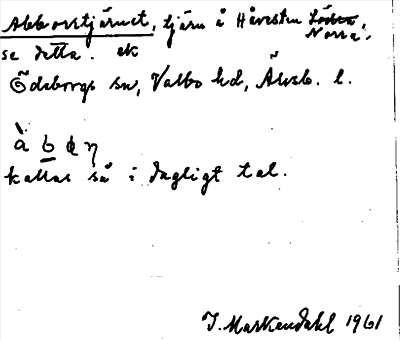 Abborrtjärnet, tjärn å Håvesten Södra, Norra,
se detta. ek
Ödeborgs sn, Valbo hd, Älvsb. l.
kallas så i dagligt tal.
J. Markendahl 1961